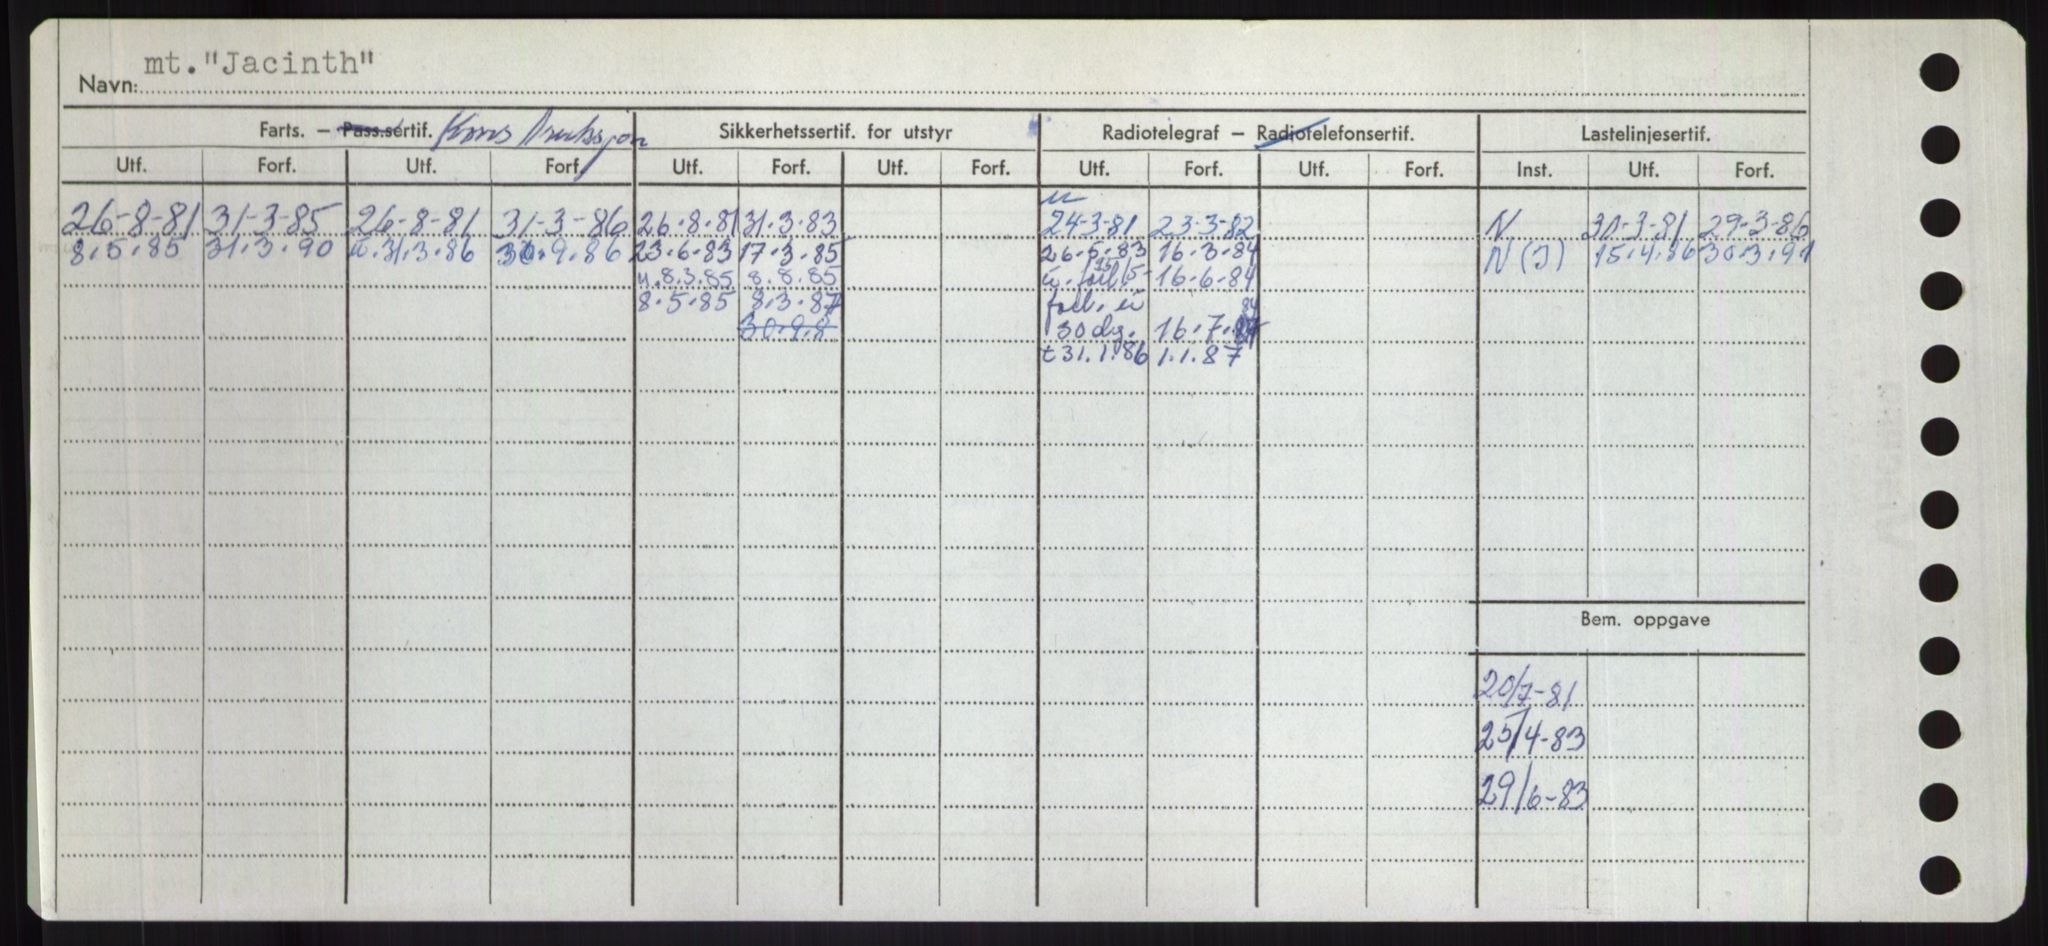 mt."Jacinth"
Navn:
Farts. – Pass.sertif. Kons
Sikkerhetssertif. for utstyr
Radiotelegraf – Radiotelefonsertif.
Lastelinjesertif.
Utf. Forf. Utf. Forf. Utf. Forf. Utf. Forf. Utf. Forf. Utf. Forf. Inst. Utf. Forf.
26-8-81 31-3-85 26-8-81 31-3-86 26.8.81 31.3.83 24-3-81 23-3-82 N 30-3-81 29-3-86
8.5.85 31.3.90 u.31.3.86 30.9.86 23.6.83 17.3.85 26.5.83 16.3.84 N (I) 15.4.86 30.3.91
u.8.3.85 8.8.85 16-6-84
8.5.85 8.3.87 84
30.9.8 30 dg. 16.7.
t 31.1.86 1.1.87
Bem. oppgave
20/7-81
25/4-83
29/6-83